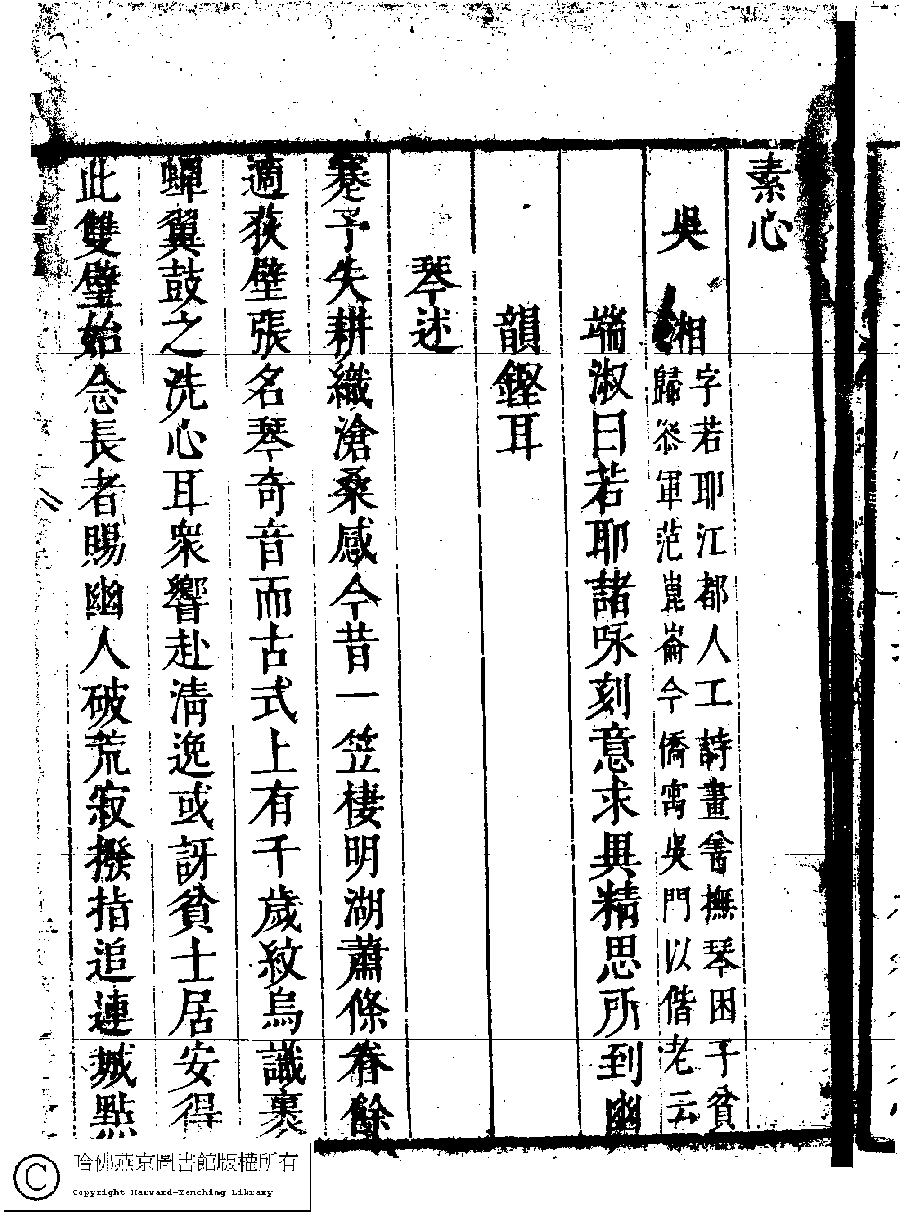 素心
吳湘
字若耶江都人工詩畫善撫琴困于貧
歸參軍范崑崙今僑寓吳門以偕老云
端淑曰若耶諸咏刻意求異精思所到幽
韻鏗耳
琴述
蹇予失耕織滄桑感今昔一笠棲明湖蕭條眷餘
適荻壁張名琴奇音而古式上有千歲紋烏識裹
蟬翼鼓之洗心耳衆響赴清逸或訝貧士居安得
此雙璧始念長者賜幽人破荒寂撥指追連城點
哈佛燕京圖書館版權所有
Copyright Harvard-Yenching Library